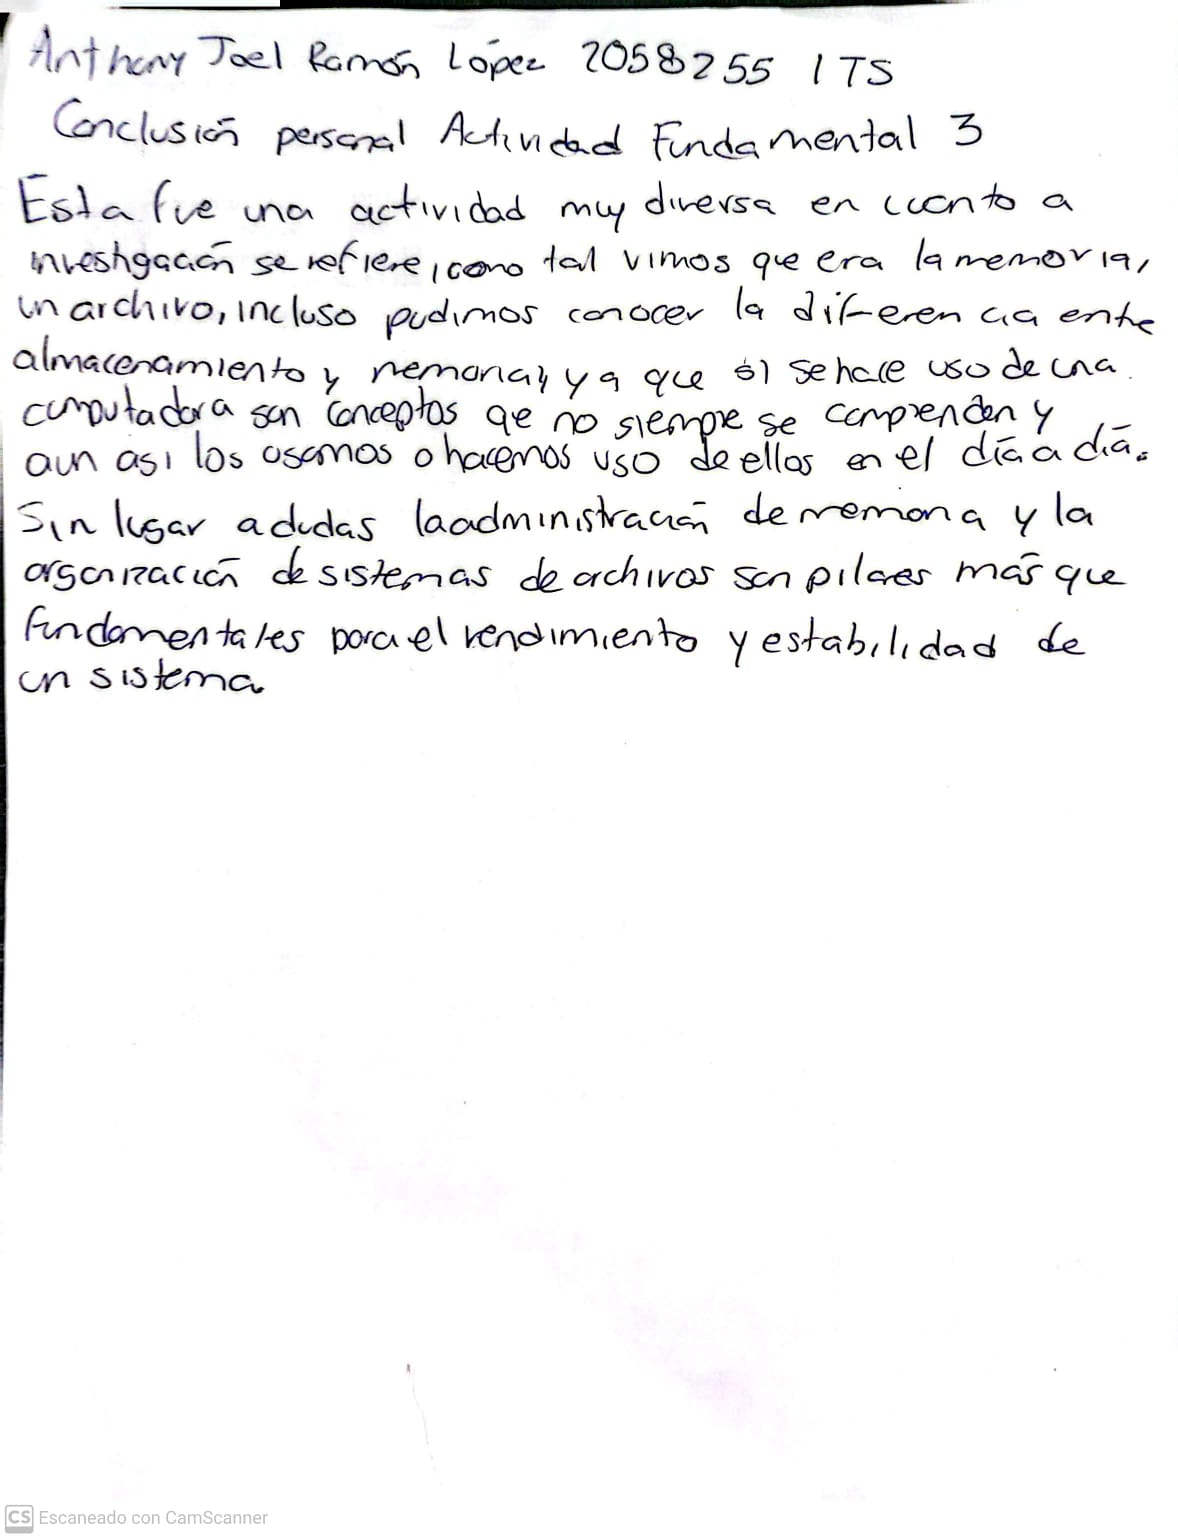 Anthony Joel Ramón López 2058255 ITS
Conclusión personal Actividad Fundamental 3
Esta fue una actividad muy diversa en cuanto a
investigación se refiere, como tal vimos que era la memoria,
un archivo, incluso pudimos conocer la diferencia entre
almacenamiento y memoria, ya que si se hace uso de una
computadora son conceptos qe no siempre se comprenden y
aun asi los usamos o hacemos uso de ellos en el día a día.
Sin lugar a dudas la administración de memoria y la
organización de sistemas de archivos son pilares más que
fundamentales para el rendimiento y estabilidad de
un sistema.
CS Escaneado con CamScanner